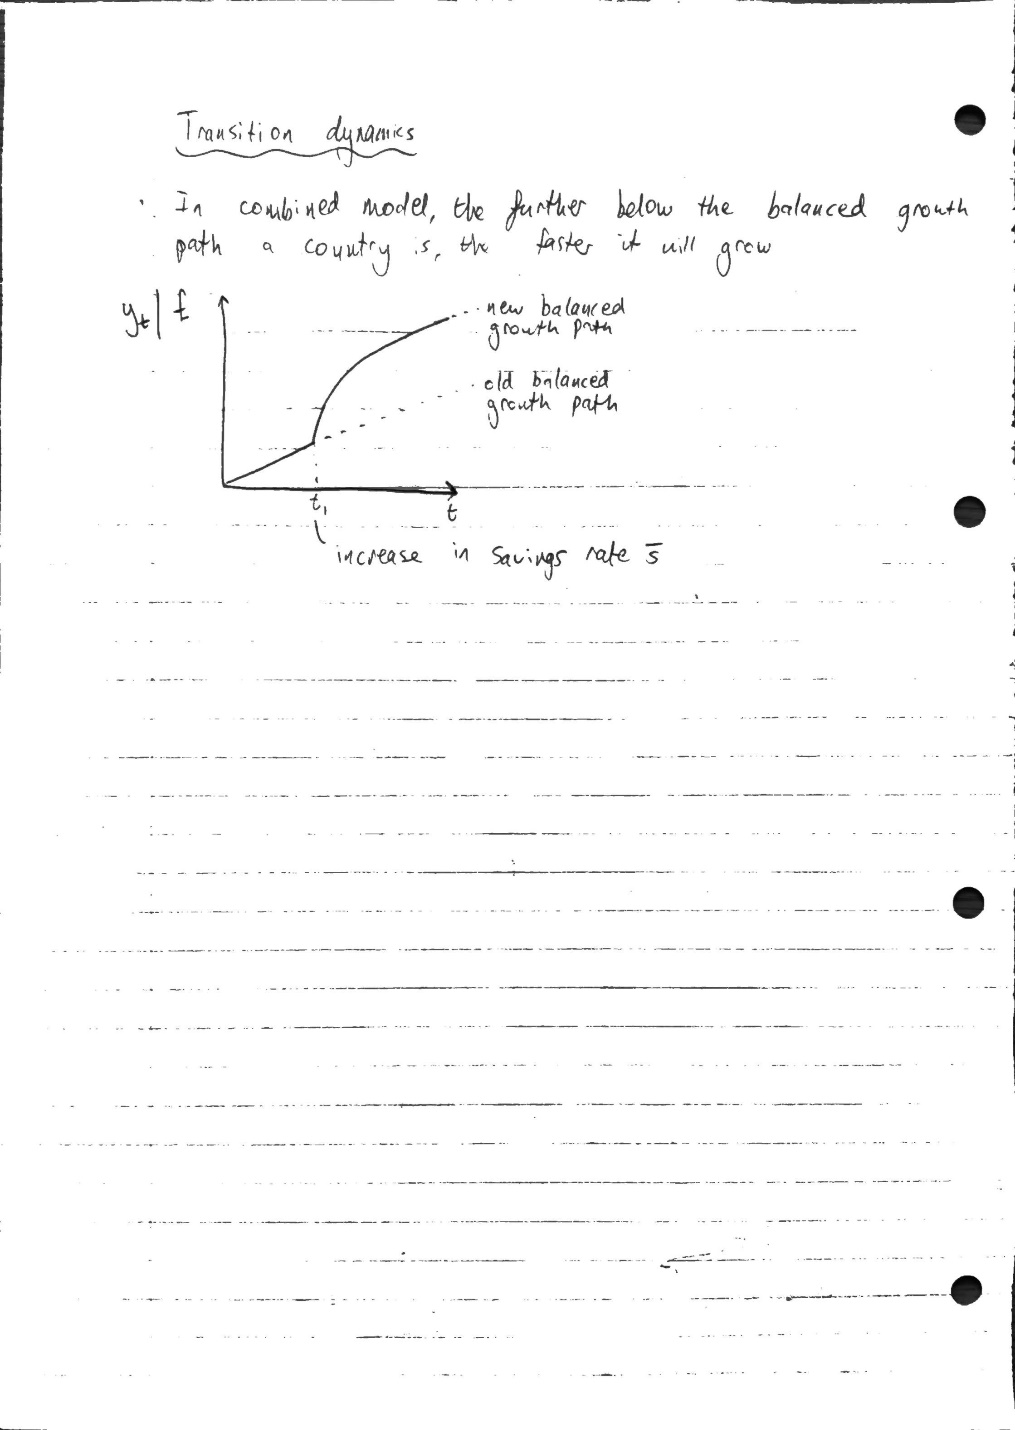 Transition dynamics
· In combined model, the further below the balanced growth
path a country is, the faster it will grow
yt | £
new balanced
growth path
old balanced
growth path
t1
t
increase in savings rate s̅